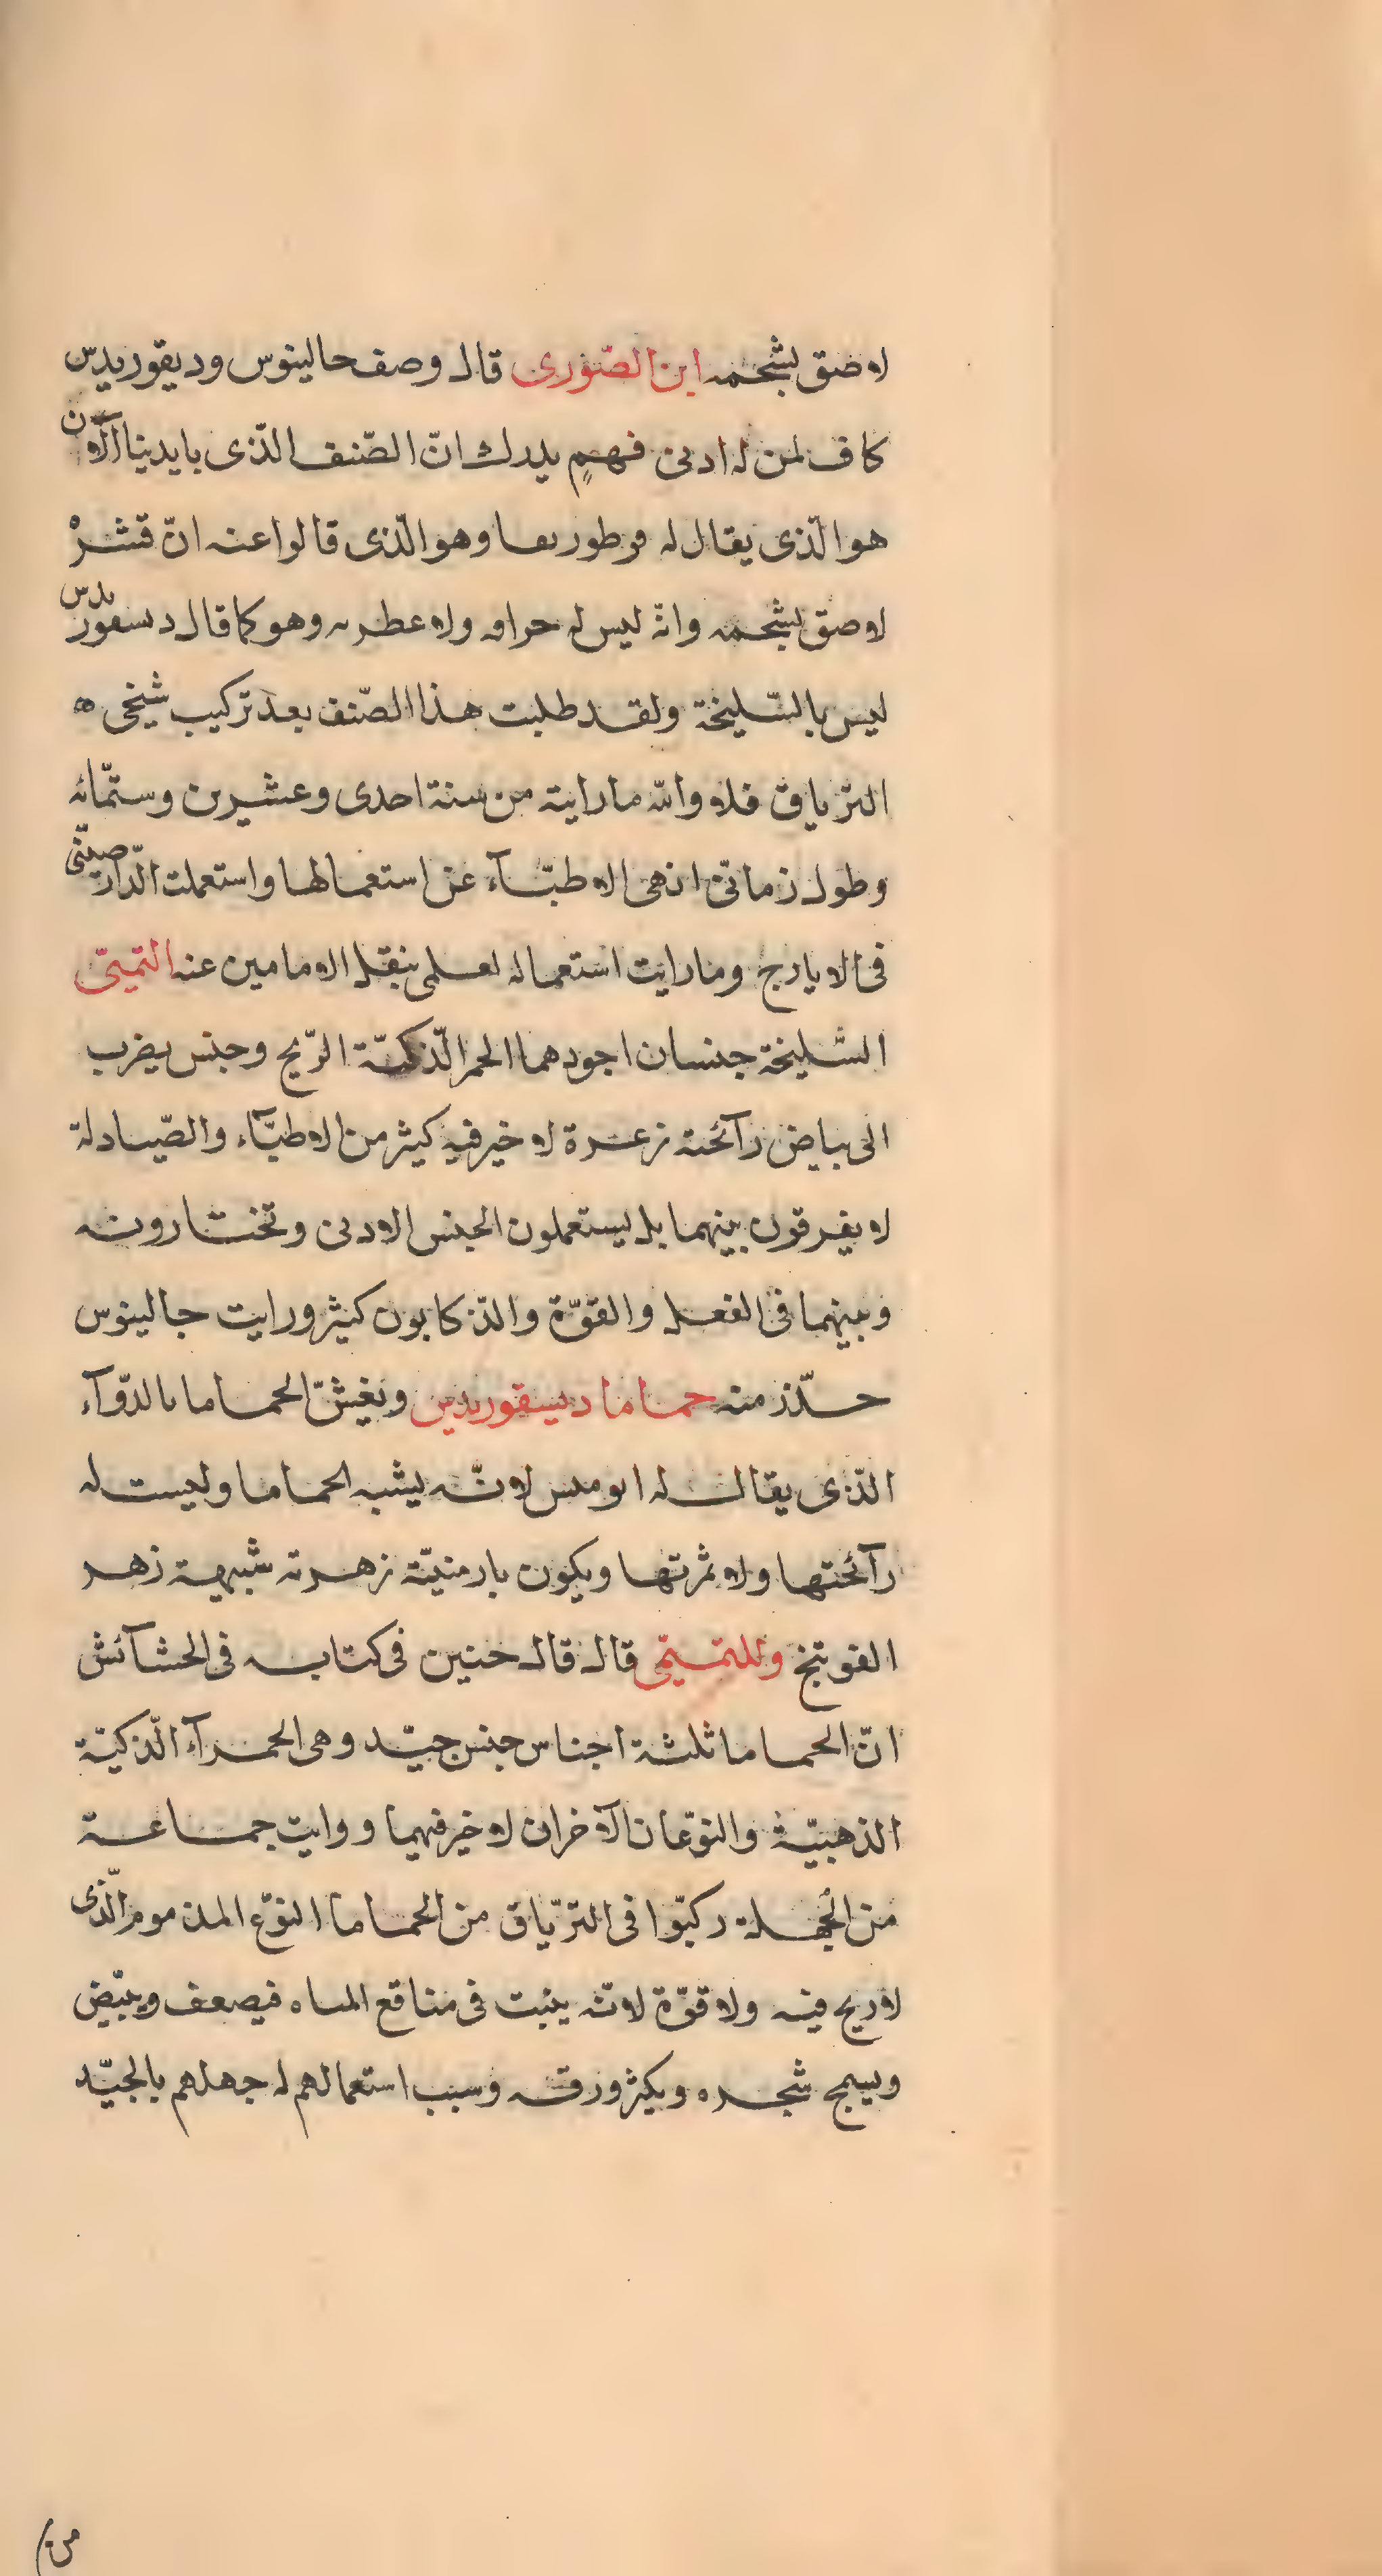 لا ضق بشحمه ابن الصّورى قال وصف حالينوس وديقوريدس
كاف لمن له ادنى فهمٍ يدرك انّ الصّنف الذّى بايدينا الآن
هو الّذى يقال له وهو الّذى قالوا عنه انّ قشره
لاصق بشحمه وانه ليس له حرافه ولا عطريه وهو كما قال دسقوريدس
ليس بالسّليخة ولقد طلبت هذا الصّنف بعد تركيب شيخى ه
التّرياق فلا والله ما رايته من سنة احدى وعشرين وستّمائه
وطول زمانى انهى الاطبّآء عن استعمالها واستعملت الدّارصينّى
فى الايارج وما رايت استعماله لعلمى بنقل الامامين عنه التميمىّ
السّليخة جنسان اجودهما الحمر الّذكيّة الرّيح وجنس يضرب
الى بياض رآئحته زعرة لا خير فيه كثير من الاطبّآء والصّيادلة
لا يفرقون بينهما بل يستعملون الجنس الادنى وتختارونه
وبينهما فى الفعل والقوّة والذّكا بون كثير ورايت جالينوس
حذّر منه حماما ديسقوريدس ويغشّ الحماما بالدّوآء
الذّى يقال له اموميس لانّه يشبه الحماما وليست له
رآئحتها ولا ثمرتها ويكون بارمنيّة زهرته شبيهة زهر
الفوتنج وللتميمّى قال قال حنين فى كتابه فى الحشآئش
انّ الحماما ثلثة اجناس جنس جيّد وهى الحمرآء الّذكيّة
الذهبيّة والنوّعان الآخران لا خير فيهما ورايت جماعة
من الجهلة ركبّوا فى الترّياق من الحماما النوّع المذموم الّذى
لا ريح فيه ولا قوّة لانّه ينبت فى مناقع المياه فيضعف ويبيّض
ويسمج شجره ويكثر ورقه وسبب استعمالهم له جهلهم بالجيّد
من